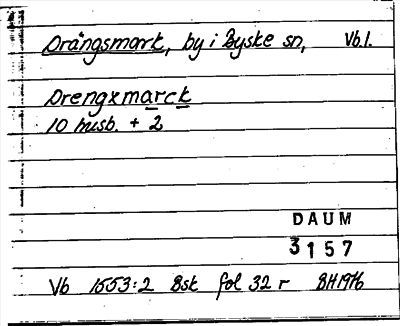 Drängsmark, by i Byske sn, Vb.l.
Drengxmarck
10 husb. + 2
DAUM
3157
Vb 1553:2 Bsk fol 32 r BH1976